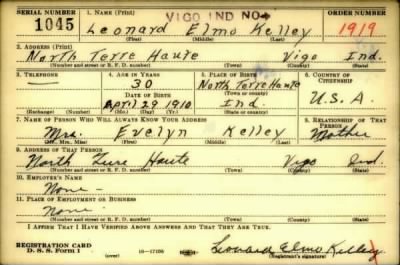 SERIAL NUMBER 1. NAME (Print) VIGO IND NO ORDER NUMBER
1045 Leonard Elmo Kelley 1919
(First) (Middle) (Last)
2. ADDRESS (Print)
North Terre Haute Vigo Ind.
(Number and street or R. F. D. number) (Town) (County) (State)
3. TELEPHONE 4. AGE IN YEARS 5. PLACE OF BIRTH 6. COUNTRY OF CITIZENSHIP
30 North Terre Haute
DATE OF BIRTH (Town or county)
April 29 1910 Ind. U.S.A.
(Exchange) (Number) (Mo.) (Day) (Yr.) (State or country)
7. NAME OF PERSON WHO WILL ALWAYS KNOW YOUR ADDRESS 8. RELATIONSHIP OF THAT PERSON
Mrs. Evelyn Kelley Mother
(Mr., Mrs., Miss) (First) (Middle) (Last)
9. ADDRESS OF THAT PERSON
North Terre Haute Vigo Ind.
(Number and street or R. F. D. number) (Town) (County) (State)
10. EMPLOYER'S NAME
None -
11. PLACE OF EMPLOYMENT OR BUSINESS
None -
(Number and street or R. F. D. number) (Town) (County) (State)
I AFFIRM THAT I HAVE VERIFIED ABOVE ANSWERS AND THAT THEY ARE TRUE.
REGISTRATION CARD
D. S. S. Form 1 (over) 16-17105 Leonard Elmo Kelley
(Registrant's signature)